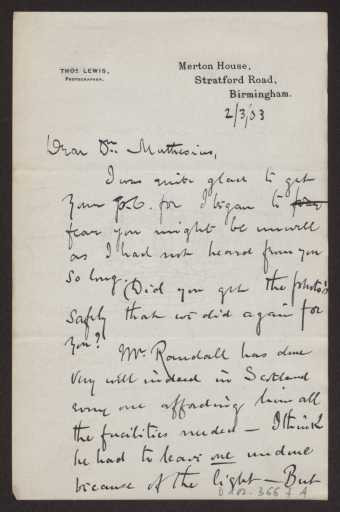 THOS. LEWIS,
PHOTOGRAPHER.
Merton House,
Stratford Road,
Birmingham.
2/3/03
Dear Dr. Muthesius,
I was quite glad to get
your p.c. for I began to
fear you might be unwell
as I had not heard from you
so long. (Did you get the photo's
safely that we did again for
you?
Mr Randall has done
very well indeed in Scotland
every one affording him all
the facilities needed – I think
he had to leave one undone
because of the light – But